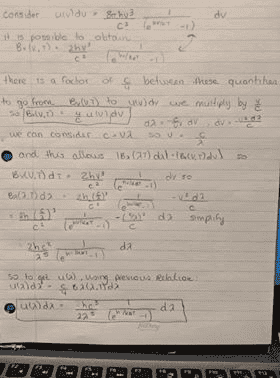 consider u(ν)dν = 8πhν³/c³ 1/(e^(hν/kBT) -1) dν
it is possible to obtain
Bν(ν,T) = 2hν³/c² 1/(e^(hν/kBT) -1)
there is a factor of c/4 between these quantities
to go from Bν(ν,T) to u(ν)dν we multiply by 4/c
so Bν(ν,T) = 4/c u(ν)dν
dλ = -c/ν² dν, dν = -ν²dλ/c
we can consider c=νλ so ν = c/λ
and this allows |Bλ(λT)dλ| = |Bν(ν,T)dν| so
Bν(ν,T)dτ = 2hν³/c² 1/(e^(hν/kBT) -1) dν so
Bλ(λ,T)dλ = 2h(c/λ)³/c² 1/(e^(hν/kBT) -1) -ν² dλ/c
= 2h(c/λ)³/c² 1/(e^(hν/kBT) -1) -(c/λ)²/c dλ simplify
= 2hc²/λ⁵ 1/(e^(hν/kBT) -1) dλ
so to get u(λ), using previous relation:
u(λ)dλ = c/4 Bλ(λ,T)dλ
u(λ)dλ = hc³/2λ⁵ 1/(e^(hν/kBT) -1) dλ